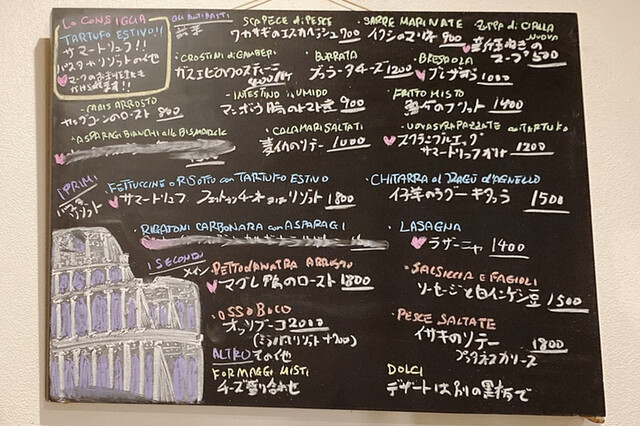 La CONSIGLIA
TARTUFO ESTIVO!!
サマートリュフ!!
パスタやリゾットの他
GLI ANTIPASTI
前菜
・SCAPECE di PESCE
ワカサギのエスカベッシュ 700
・SARDE MARINATE
イワシのマリネ 900
・ZUPPA di CIPOLLA NUOVA
新玉ねぎのスープ 500
・CROSTINI di GAMBERI
ガスエビのクロスティーニ
・BURRATA
ブッラータチーズ 1200
・BRESAOLA
ブレザオラ 1000
・MAIS ARROSTO
ヤングコーンのロースト 800
・INTESTINO in UMIDO
マンボウ腸のトマト煮 900
・FRITTO MISTO
のフリット 1400
・ASPARAGI BIANCHI alla BISMARCK
・CALAMARI SALTATI
麦イカのソテー 1000
・UOVA STRAPAZZATE con TARTUFO
スクランブルエッグ
サマートリュフ 1200
I PRIMI
パスタ
リゾット
・FETTUCCINE o RISOTTO con TARTUFO ESTIVO
サマートリュフ フェットチーネ or リゾット 1800
・CHITARRA al RAGU d'AGNELLO
仔羊のラグー キタッラ 1500
・RIGATONI CARBONARA con ASPARAGI
・LASAGNA
ラザーニャ 1400
I SECONDI
メイン
・PETTO d'ANATRA ARROSTO
マグレ鴨のロースト 1800
・SALSICCIA E FAGIOLI
ソーセージと白インゲン豆 1500
・OSSOBUCO
オッソブーコ 2000
(ミラノ風リゾット +700)
・PESCE SALTATE
イサキのソテー 1800
ALTRO その他
FORMAGGI MISTI
チーズ盛り合わせ
DOLCI
デザートは別の黒板で